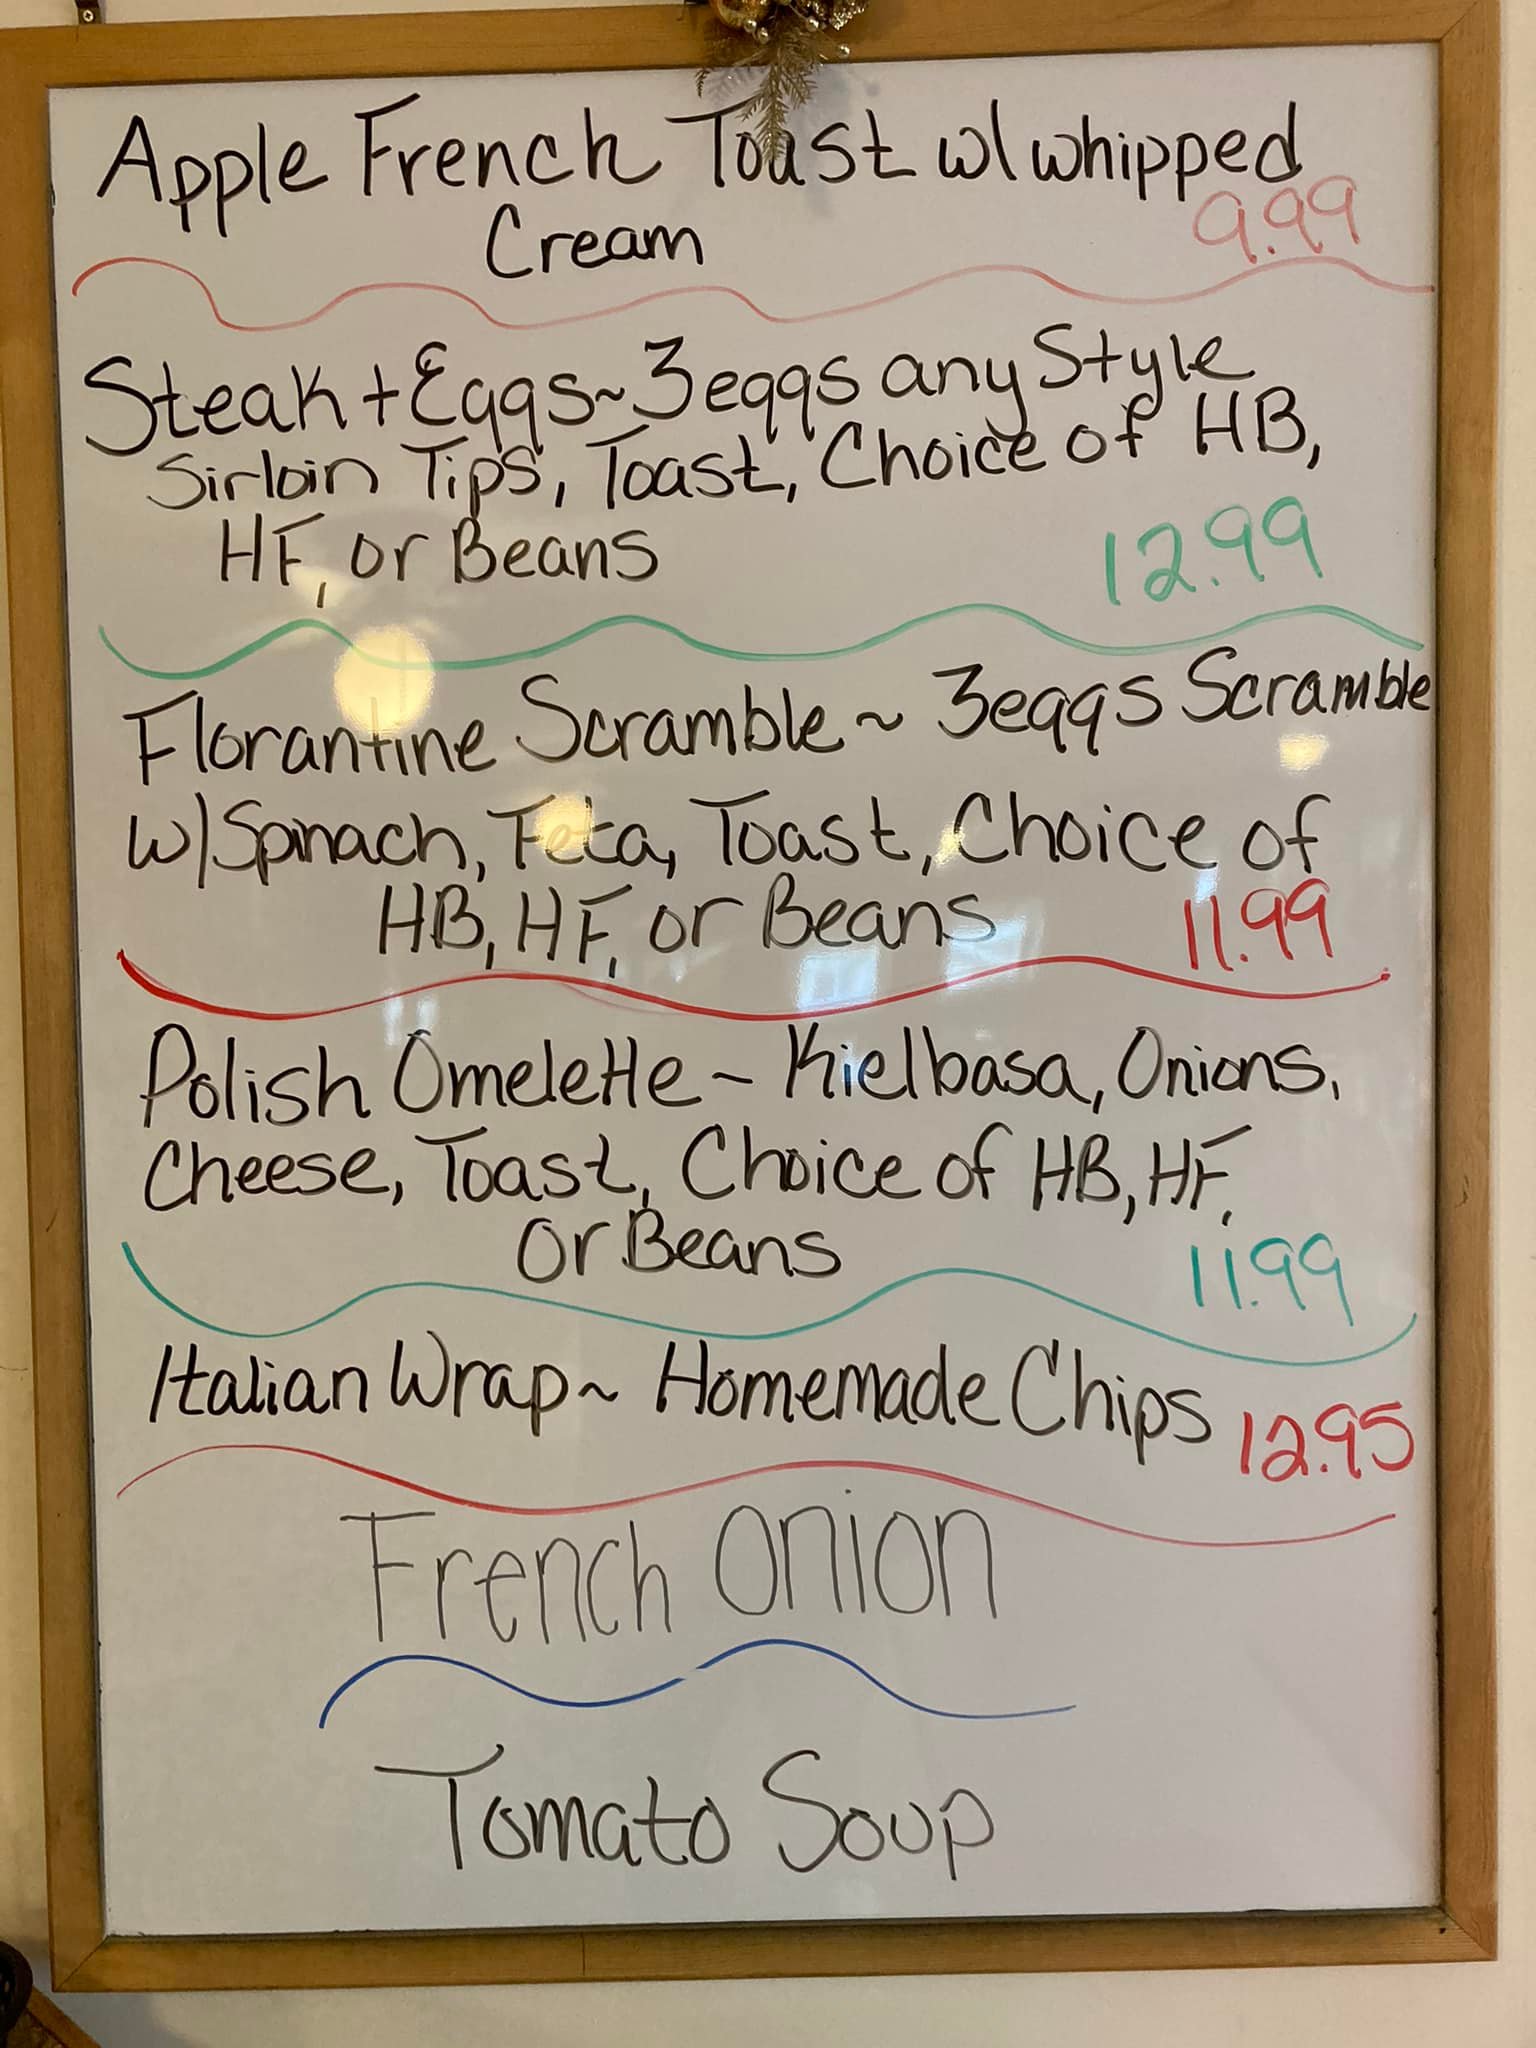 Apple French Toast w/ whipped
Cream
9.99
Steak + Eggs ~ 3 eggs any Style
Sirloin Tips, Toast, Choice of HB,
HF, or Beans
12.99
Florantine Scramble ~ 3 eggs Scramble
w/ Spinach, Feta, Toast, Choice of
HB, HF, or Beans
11.99
Polish Omelette ~ Kielbasa, Onions,
Cheese, Toast, Choice of HB, HF,
or Beans
11.99
Italian Wrap ~ Homemade Chips 12.95
French Onion
Tomato Soup